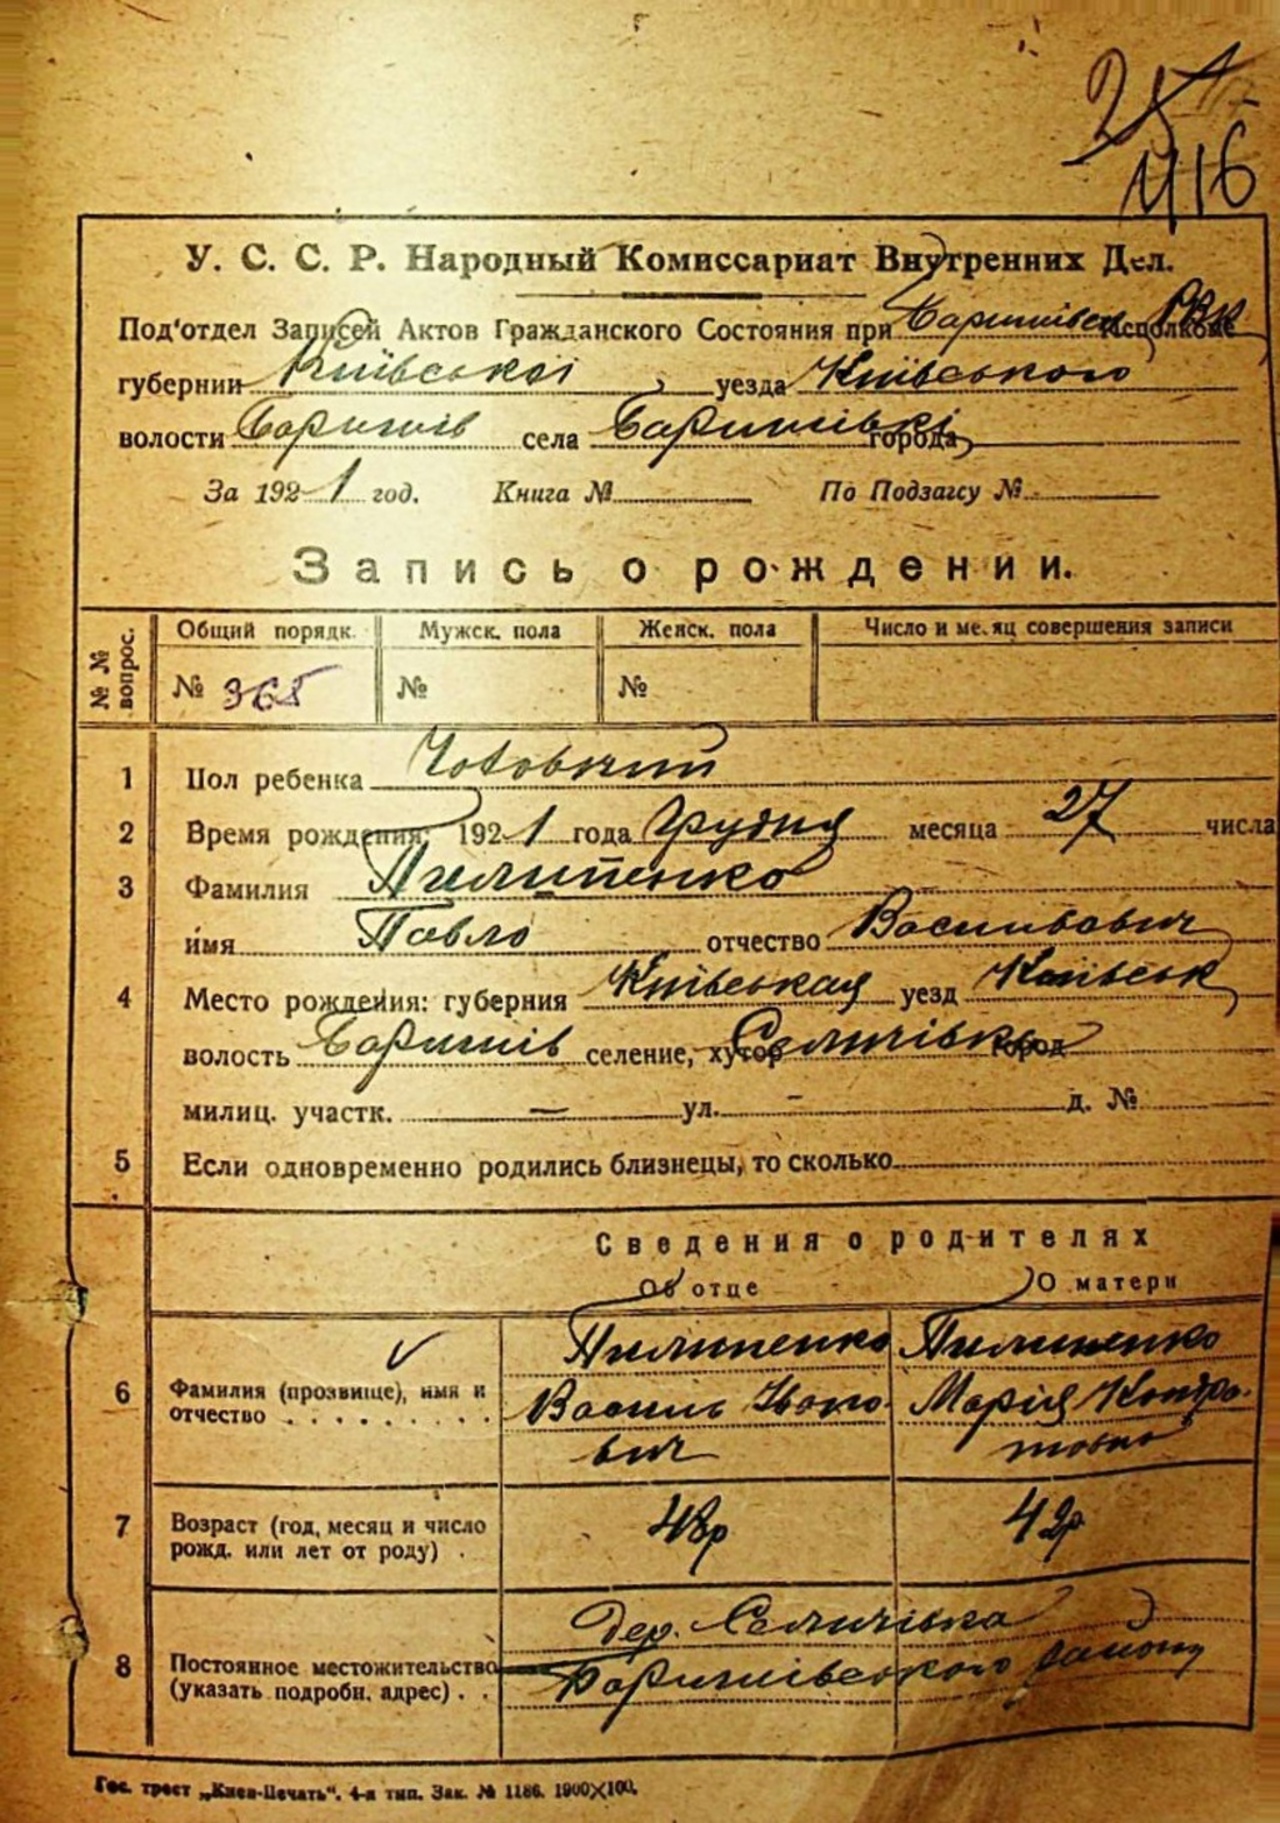 416
У. С. С. Р. Народный Комиссариат Внутренних Дел.
Под'отдел Записей Актов Гражданского Состояния при Баришівськ. РВК Исполкоме
губернии Київської уезда Київського
волости Баришів села Баришівкі города
За 1921 год. Книга № По Подзагсу №
Запись о рождении.
№ № вопрос. Общий порядк. Мужск. пола Женск. пола Число и месяц совершения записи
№ 365 № №
1 Пол ребенка Чоловічий
2 Время рождения: 1921 года Грудня месяца 27 числа
3 Фамилия Пилипенко
имя Павло отчество Васильович
4 Место рождения: губерния Київськая уезд Київськ
волость Баришів селение, хутор Селичівка город
милиц. участк. — ул. - д. №
5 Если одновременно родились близнецы, то сколько
Сведения о родителях
Об отце О матери
Пилипенко Пилипенко
6 Фамилия (прозвище), имя и отчество . . . . . . . . . Василь Івано- Марія Кондра-
вич товна
7 Возраст (год, месяц и число рожд. или лет от роду) . 48р 42р
8 Постоянное местожительство (указать подробн. адрес) . . Дер. Селичівка
Баришівського району
Гос. трест „Киев-Печать“. 4-я тип. Зак. № 1186. 1900×100.